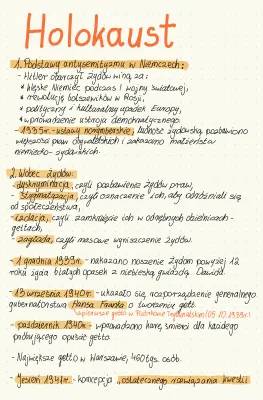 Holokaust
1. Podstawy antysemityzmu w Niemczech:
- Hitler obarczył Żydów winą za:
* klęskę Niemiec podczas I wojny światowej,
* rewolucję bolszewików w Rosji,
* polityczny i kulturalny upadek Europy,
* wprowadzenie ustroju demokratycznego.
- 1935r. - ustawy norymberskie, ludność żydowską pozbawiono
większości praw obywatelskich i zakazano małżeństw
niemiecko - żydowskich.
2. Wobec Żydów:
- dyskryminacja, czyli pozbawienie Żydów praw,
- stygmatyzacja, czyli oznaczenie ich, aby odróżniali się
od społeczeństwa,
- izolacja, czyli zamknięcie ich w odrębnych dzielnicach -
gettach,
- zagłada, czyli masowe wyniszczenie Żydów.
- 1 grudnia 1939r. - nakazano noszenie Żydom powyżej 12
roku życia białych opasek z niebieską gwiazdą Dawida.
- 13 września 1940r. - ukazało się rozporządzenie generalnego
gubernatorstwa Hansa Franka o tworzeniu gett.
pierwsze getto w Piotrkowie Trybunalskim (05.10.1939r.)
- październik 1940r. - wprowadzono karę śmierci dla każdego
próbującego opuścić getto.
- Największe getto w Warszawie, 460 tys. osób.
- Jesień 1941r. - koncepcja "ostatecznego rozwiązania kwestii